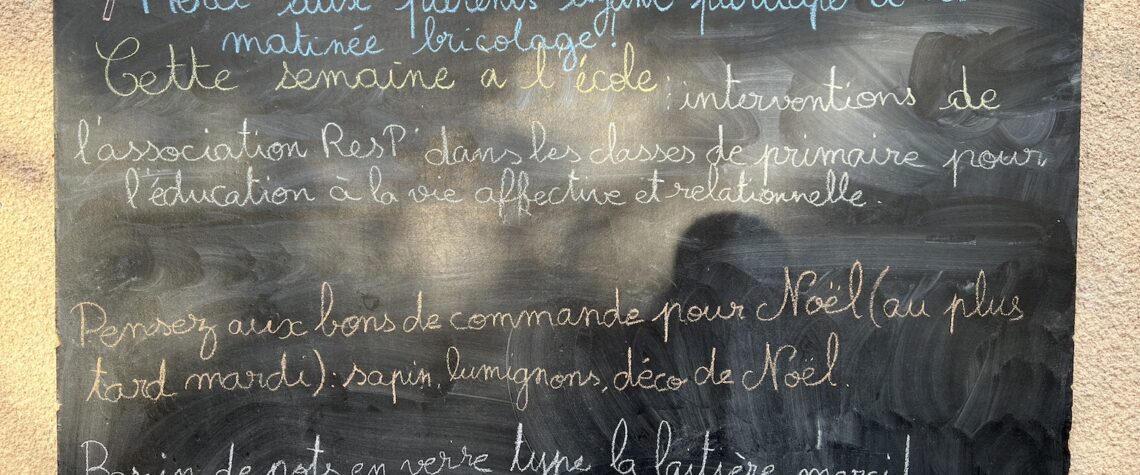 Merci aux parents ayant participé à la
matinée bricolage!
Cette semaine a l'école : interventions de
l'association ResP' dans les classes de primaire pour
l'éducation à la vie affective et relationnelle.
Pensez aux bons de commande pour Noël (au plus
tard mardi) : sapin, lumignons, déco de Noël.
Besoin de pots en verre type la laitière merci!